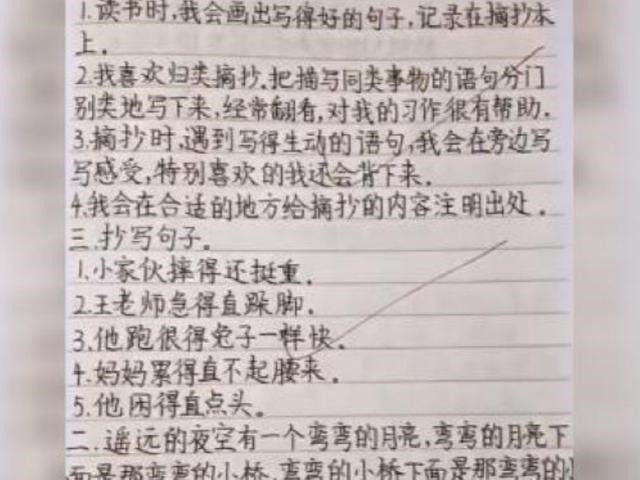 1.读书时,我会画出写得好的句子,记录在摘抄本
上.
2.我喜欢归类摘抄.把描写同类事物的语句分门
别类地写下来,经常翻看,对我的习作很有帮助.
3.摘抄时,遇到写得生动的语句,我会在旁边写
写感受,特别喜欢的我还会背下来.
4.我会在合适的地方给摘抄的内容注明出处.
三.抄写句子.
1.小家伙摔得还挺重.
2.王老师急得直跺脚.
3.他跑很得兔子一样快.
4.妈妈累得直不起腰来.
5.他困得直点头.
二.遥远的夜空有一个弯弯的月亮,弯弯的月亮下
面是那弯弯的小桥,弯弯的小桥下面是那弯弯的